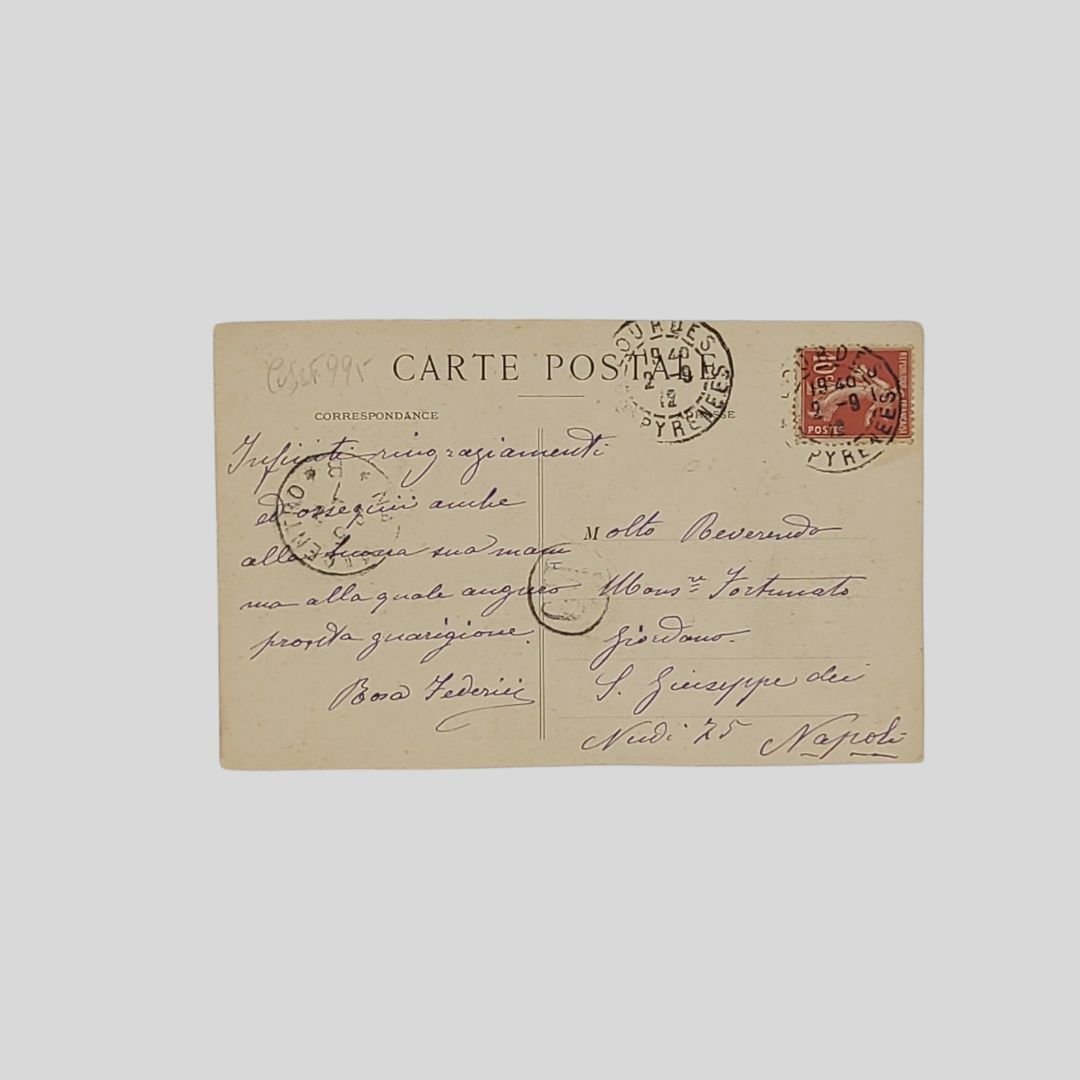 CARTE POSTALE
CORRESPONDANCE
Infiniti ringraziamenti
ed ossequii anche
alla buona sua mam
ma alla quale auguro
pronta guarigione.
Rosa Federici
Molto Reverendo
Monsʳᵉ Fortunato
Giordano
S. Giuseppe dei
Nudi 75 Napoli
LOURDES
19 40
2 -9
12
PYRENEES
OURDE
19 40
2 -9
PYRENEES
10
POSTES
REPUBLIQUE FRANÇAISE